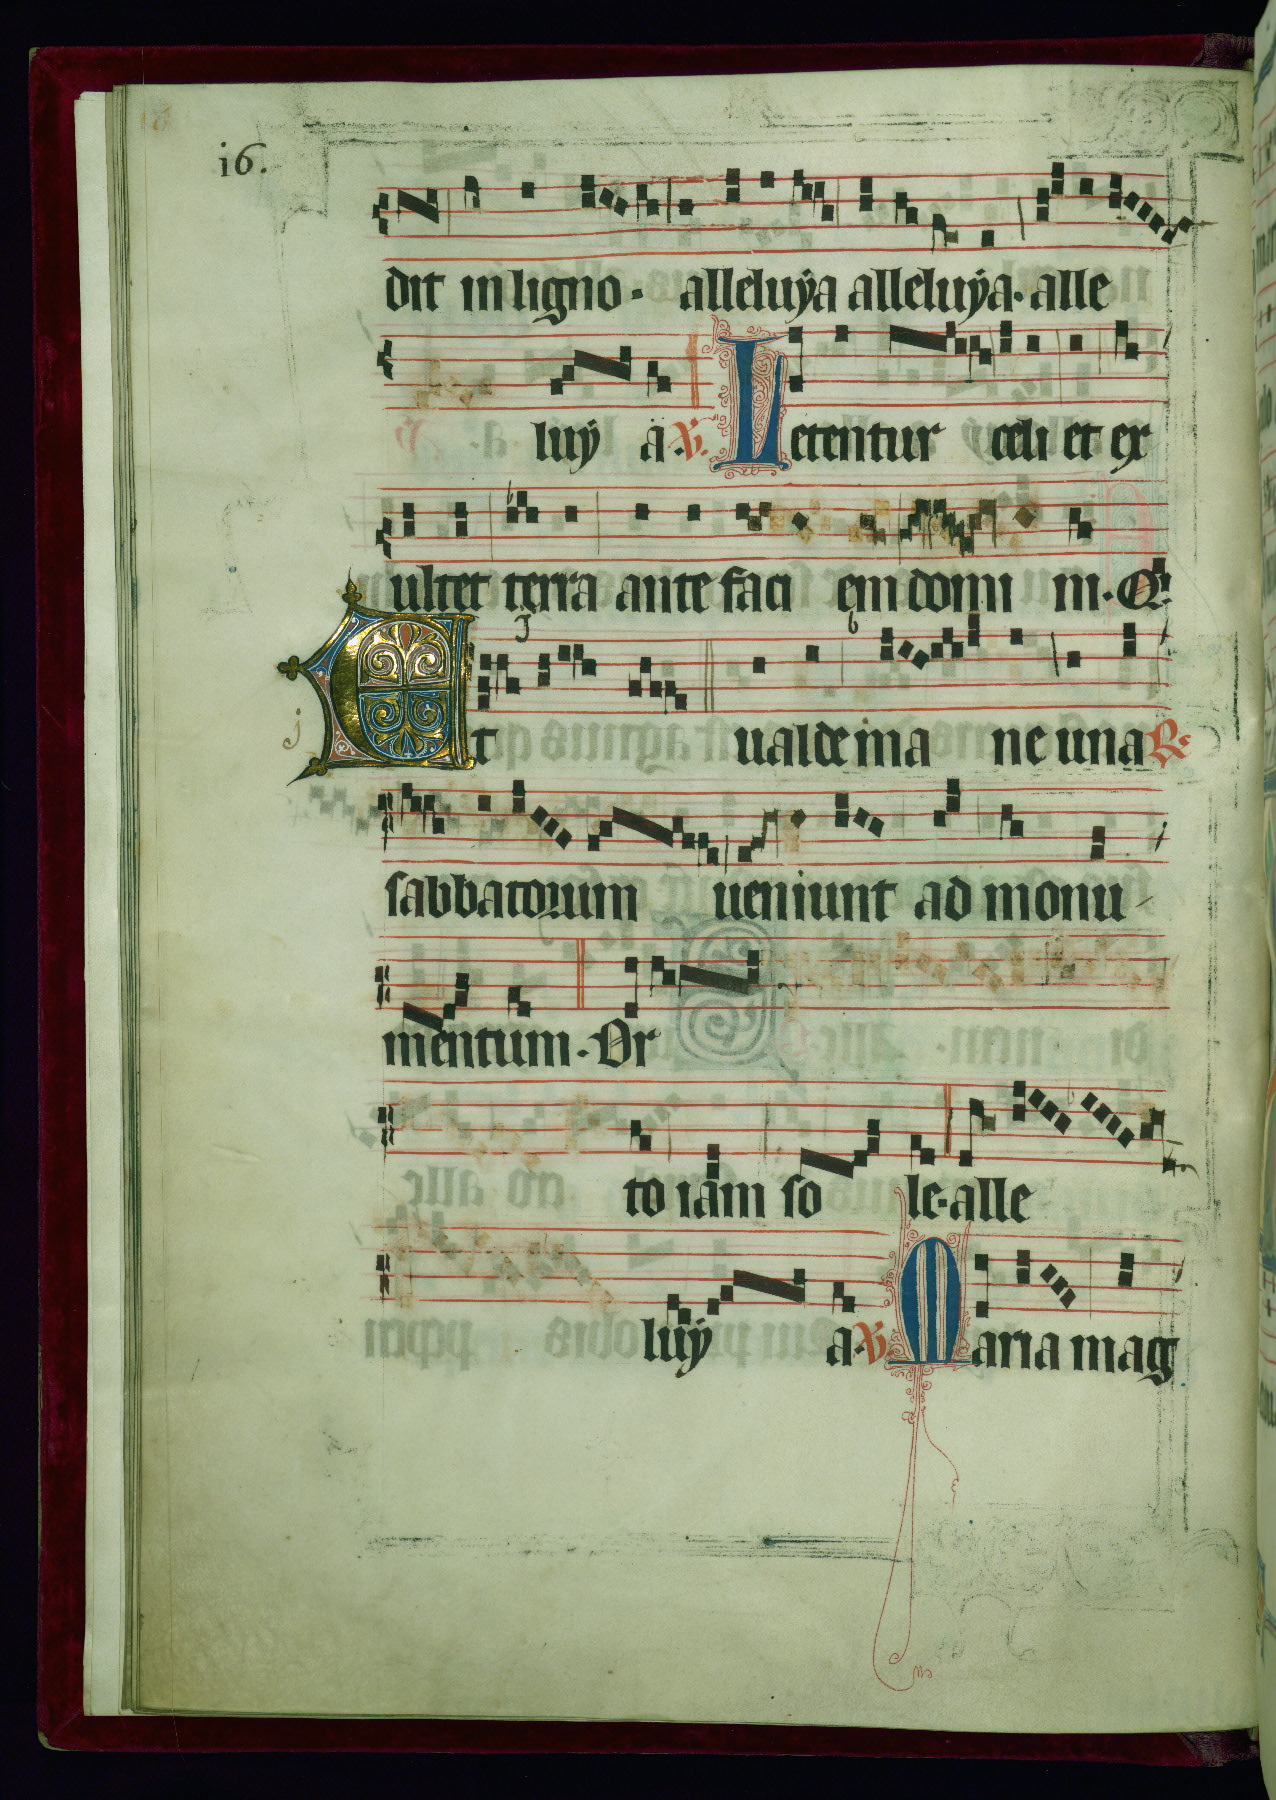 i6.
dit in ligno · alleluÿa alleluÿa · alle
luÿ a · V. Letentur celi et ex
ultet terra ante faci em domi ni · Q
Et ualde ma ne una R
j
sabbatorum ueniunt ad monu
mentum · Or
to iam so le · alle
luÿ a · V. Maria mag